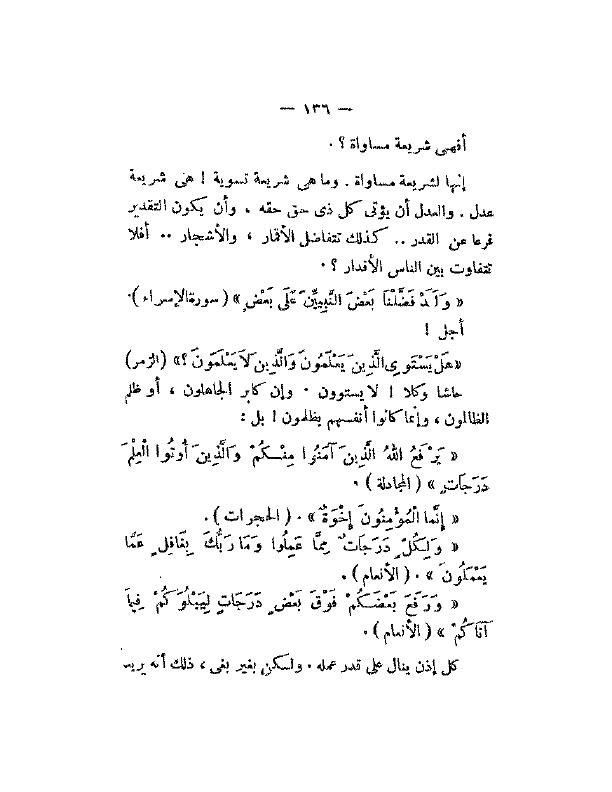 — ١٣٦ —
أفهى شريعة مساواة ؟ .
إنها لشريعة مساواة . وما هى شريعة تسوية ! هى شريعة
عدل . والعدل أن يؤتى كل ذى حق حقه ، وأن يكون التقدير
فرعا عن القدر .. كذلك تتفاضل الأثمار ، والأشجار .. أفلا
تتفاوت بين الناس الأقدار ؟ .
« وَلَقَدْ فَضَّلْنَا بَعْضَ النَّبِيِّينَ عَلَى بَعْضٍ » ( سورة الإسراء ) .
أجل !
« هَلْ يَسْتَوِي الَّذِينَ يَعْلَمُونَ وَالَّذِينَ لَا يَعْلَمُونَ ؟ » (الزمر)
حاشا وكلا ! لا يستوون . وإن كابر الجاهلون ، أو ظلم
الظالمون ، وإنما كانوا أنفسهم يظلمون ! بل :
« يَرْفَعُ اللهُ الَّذِينَ آمَنُوا مِنْكُمْ وَالَّذِينَ أُوتُوا الْعِلْمَ
دَرَجَاتٍ » ( المجادلة ) .
« إِنَّمَا الْمُؤْمِنُونَ إِخْوَةٌ » . ( الحجرات ) .
« وَلِكُلٍّ دَرَجَاتٌ مِمَّا عَمِلُوا وَمَا رَبُّكَ بِغَافِلٍ عَمَّا
يَعْمَلُونَ » . ( الأنعام ) .
« وَرَفَعَ بَعْضَكُمْ فَوْقَ بَعْضٍ دَرَجَاتٍ لِيَبْلُوَكُمْ فِيمَا
آتَاكُمْ » ( الأنعام ) .
كل إذن ينال على قدر عمله . ولكن بغير بغى ، ذلك أنه